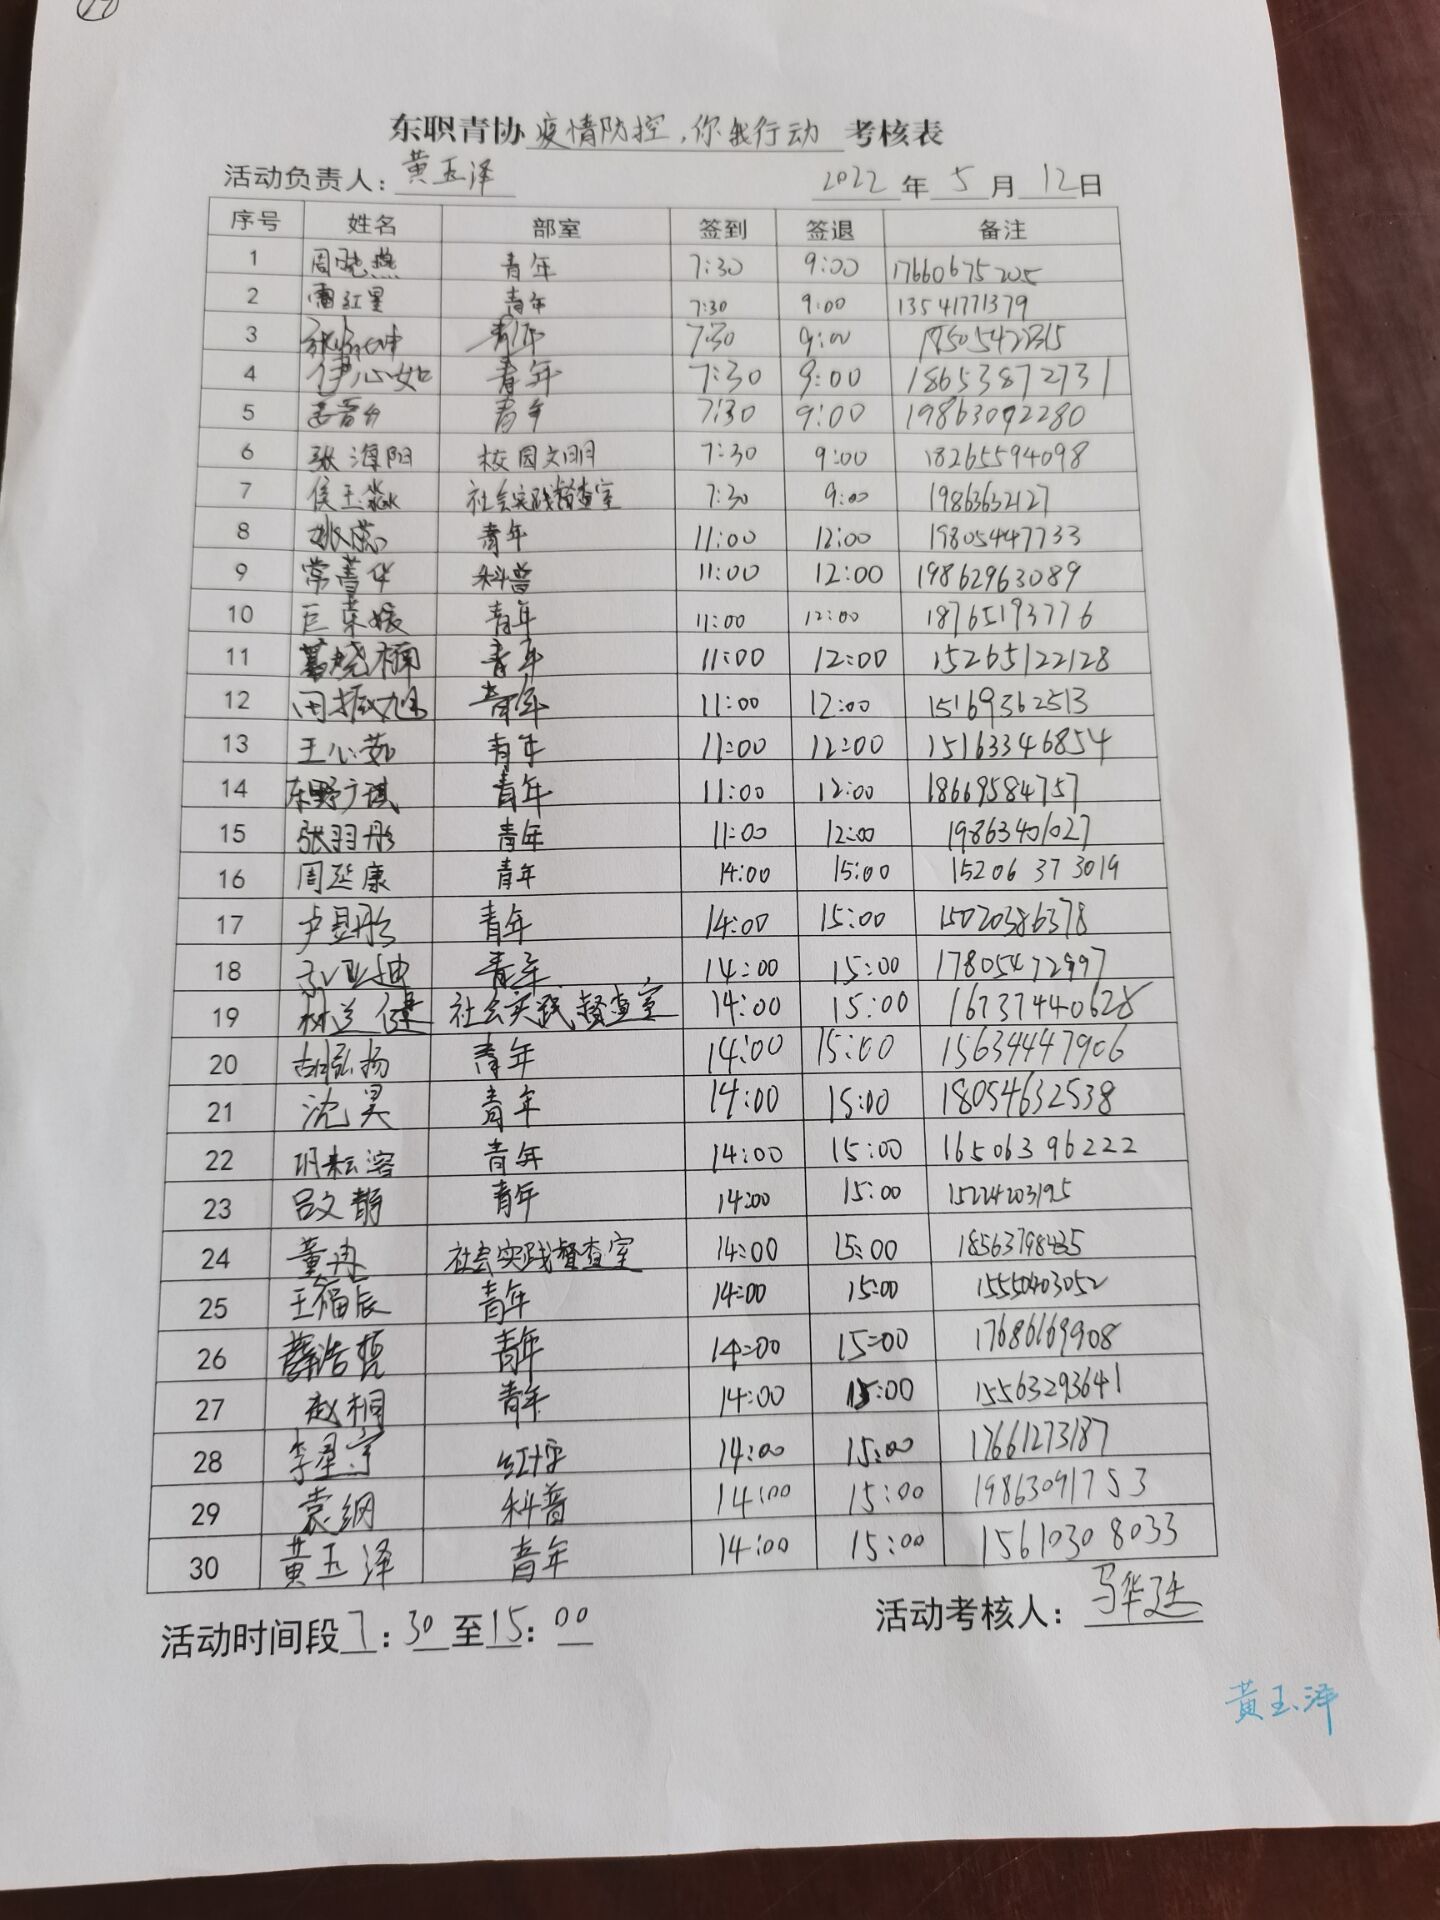 东职青协疫情防控,你我行动考核表
活动负责人:黄玉泽 2022年5月12日
序号 姓名 部室 签到 签退 备注
1 周晓燕 青年 7:30 9:00 17660675205
2 雷红星 青年 7:30 9:00 13541771379
3 青年 7:30 9:00
4 伊心如 青年 7:30 9:00 18653872731
5 青年 7:30 9:00 19863092280
6 张海阳 校园文明 7:30 9:00 18265594098
7 侯玉淼 社会实践督查室 7:30 9:00 19863632127
8 青年 11:00 12:00 19805447733
9 常菁华 科普 11:00 12:00 19862963089
10 巨荣媛 青年 11:00 12:00 18765193776
11 葛晓楠 青年 11:00 12:00 15265122128
12 田振旭 青年 11:00 12:00 15169362513
13 王心茹 青年 11:00 12:00 15163346854
14 东野广琪 青年 11:00 12:00 18669584757
15 张羽彤 青年 11:00 12:00 19863401027
16 周延康 青年 14:00 15:00 15206373019
17 卢昱彤 青年 14:00 15:00 15020386378
18 青年 14:00 15:00 17805472997
19 社会实践督查室 14:00 15:00 16737440628
20 胡弘扬 青年 14:00 15:00 15634447906
21 沈昊 青年 14:00 15:00 18054632538
22 青年 14:00 15:00 16506396222
23 吕文静 青年 14:00 15:00 15224203195
24 董冉 社会实践督查室 14:00 15:00 18563798435
25 王福辰 青年 14:00 15:00 15550403052
26 薛浩哲 青年 14:00 15:00 17686169908
27 赵桐 青年 14:00 15:00 15563293641
28 李星宇 红十字 14:00 15:00 17661273187
29 袁纲 科普 14:00 15:00 19863091753
30 黄玉泽 青年 14:00 15:00 15610308033
活动时间段7:30至15:00 活动考核人:马华廷
黄玉泽